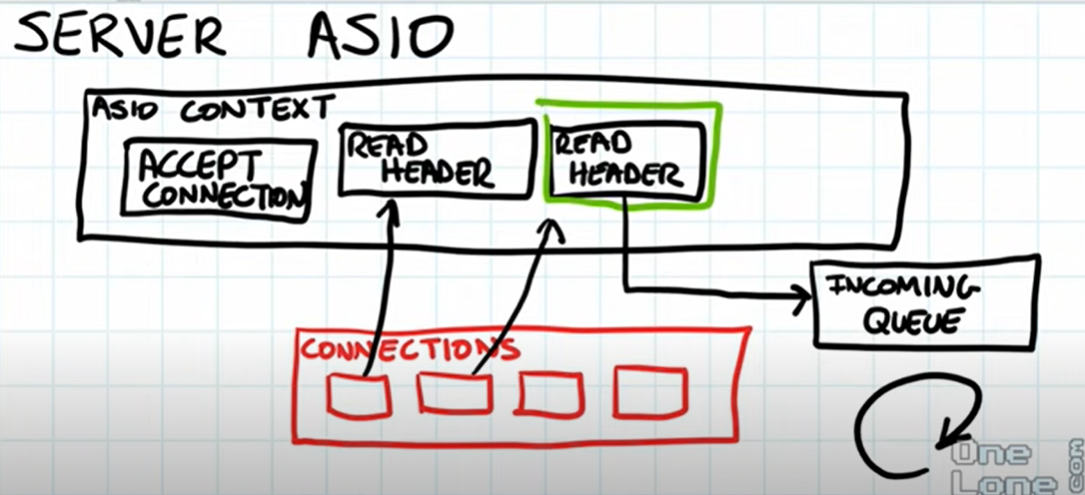 SERVER ASIO
ASIO CONTEXT
ACCEPT
CONNECTION
READ
HEADER
READ
HEADER
INCOMING
QUEUE
CONNECTIONS
One
Lone
COM